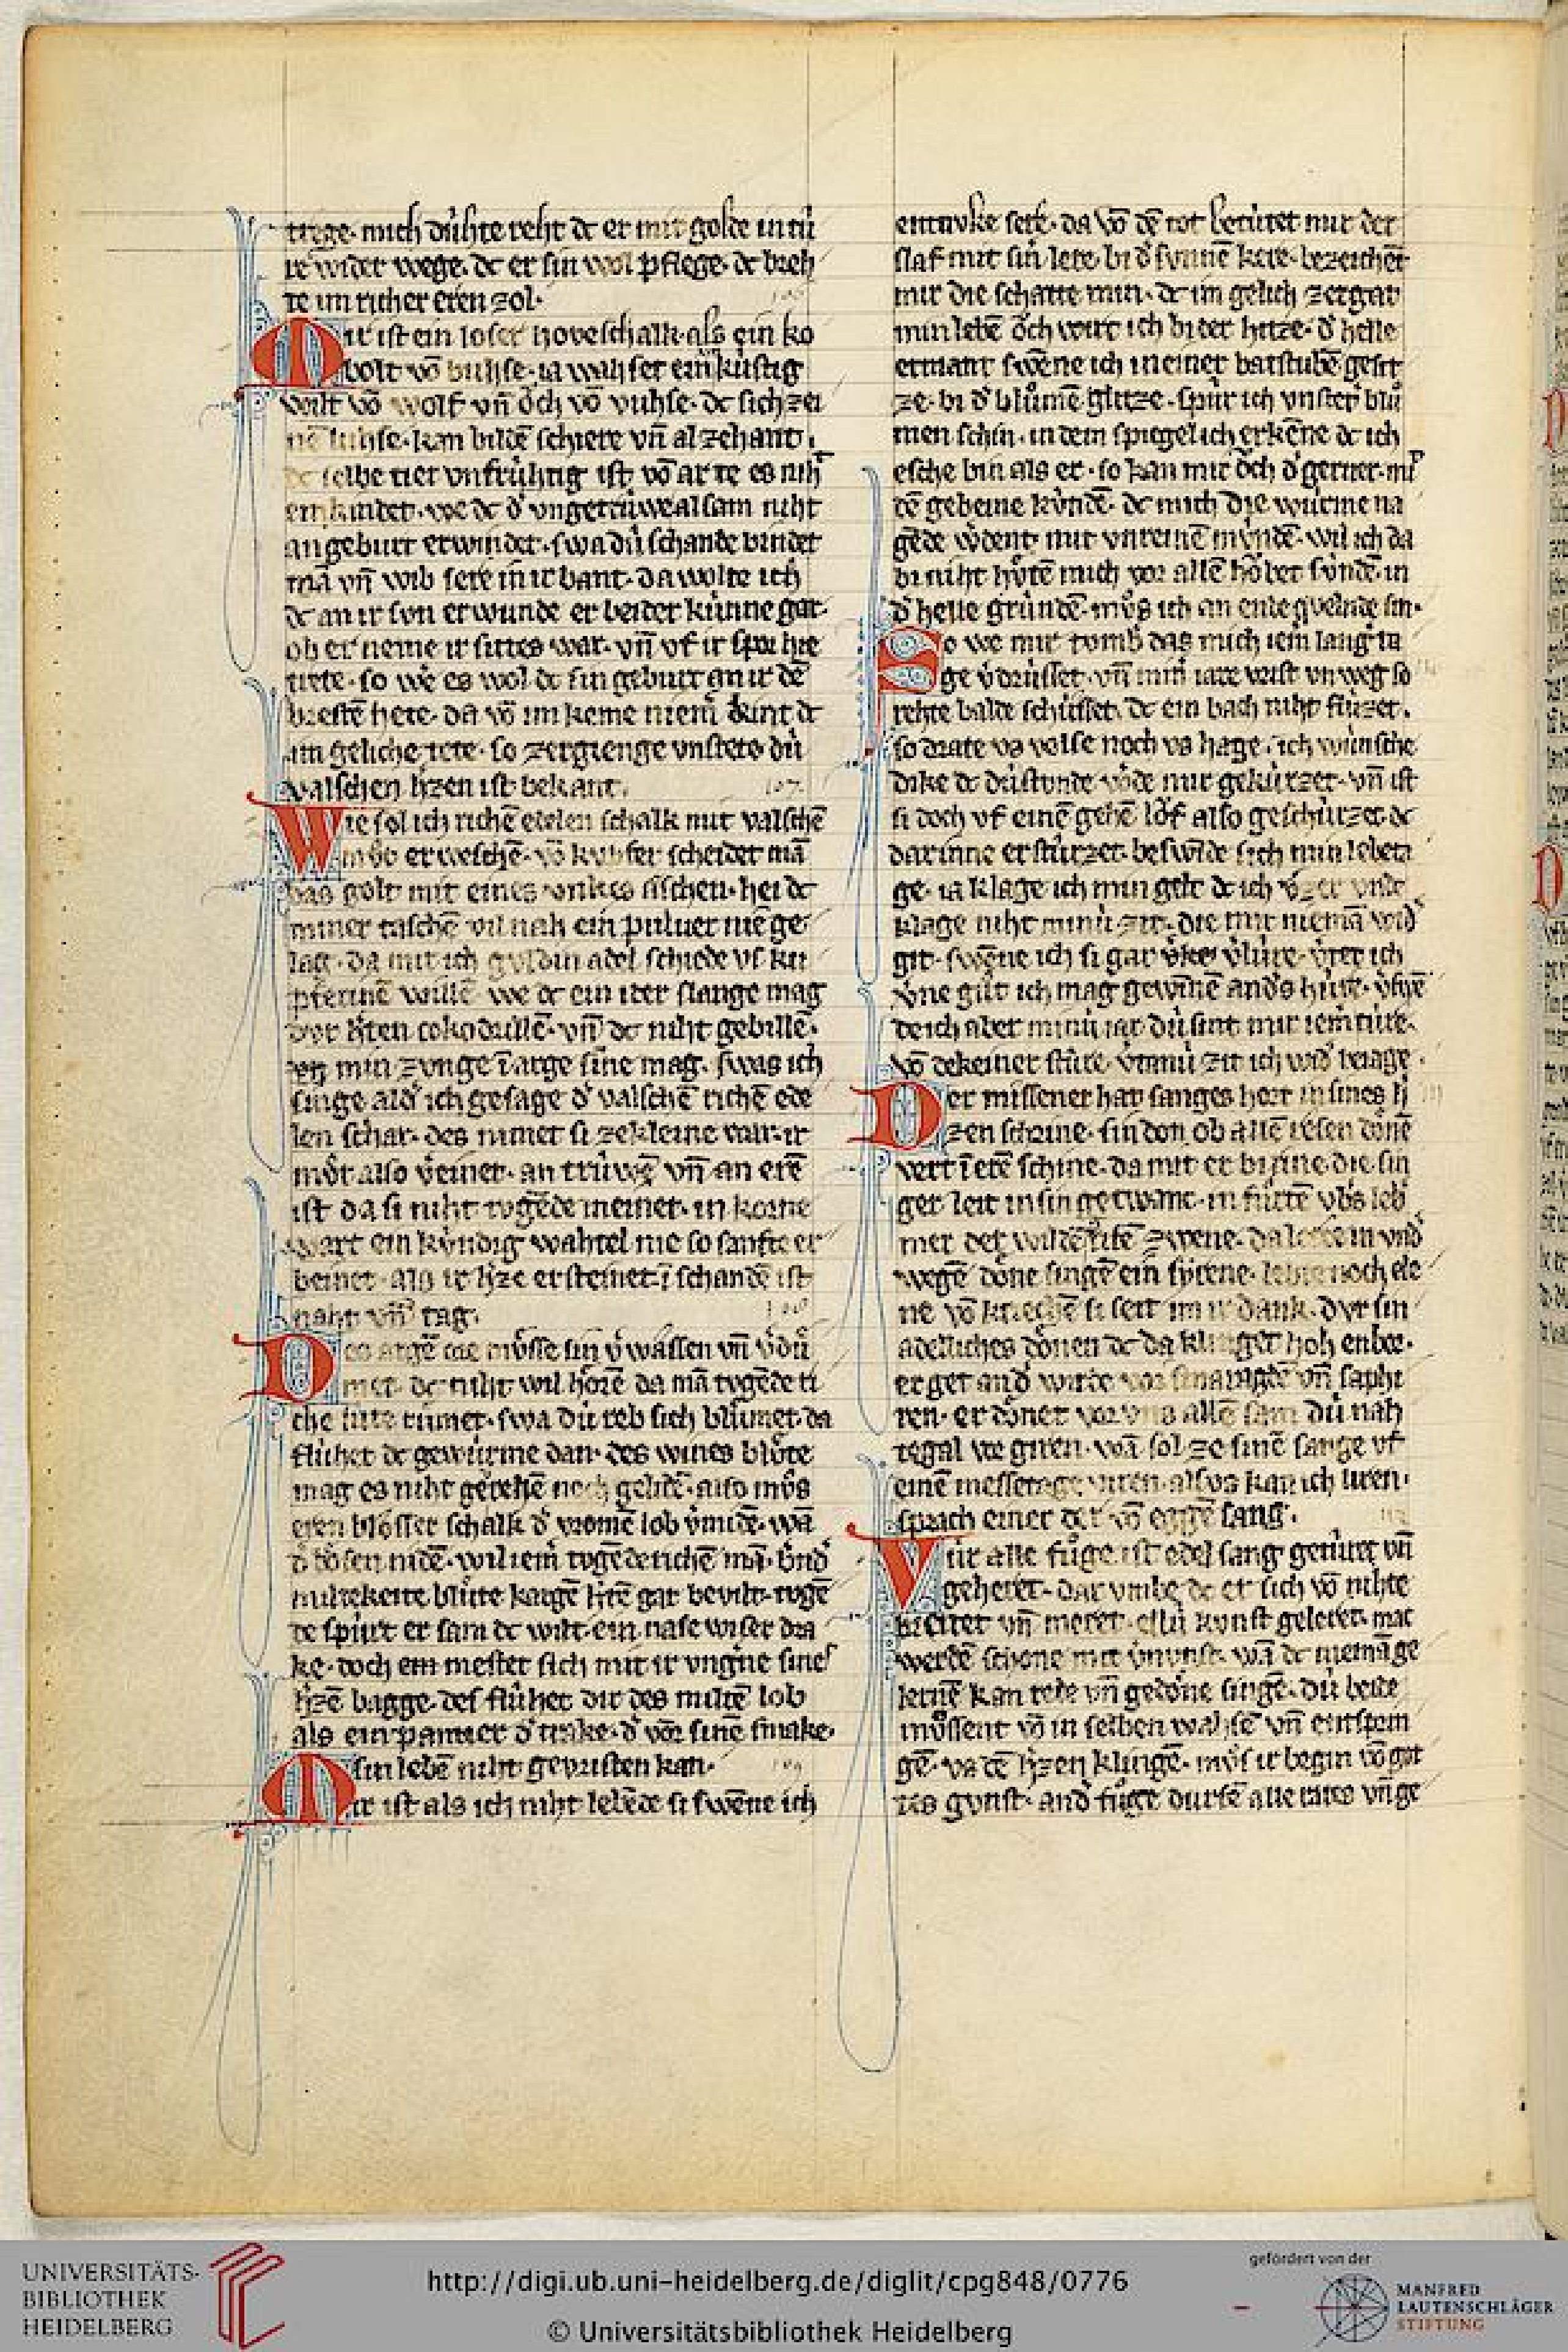 trege· mich dúhte reht dc er mit golde in tú
re wider wege· dc er sin wol pflege· dc breh
te im richer eren zol·
Mir ist ein loser hoveschalk· als ein ko
bolt vō buhse· ia wahset ein kústig
wilt vō wolf vn̄ ŏch vō vuhse· dc sich zei
nē luhse· kan bildē schiere vn̄ al zehant·
dc selbe tier vnfrúhtig ist· vō arte es niht
enkindet· we dc d᾽ vngetrúwe alsam niht
an geburt erwindet· swa dú schande bindet
mā vn̄ wib sere in ir bant· da wolte ich
dc an ir svn erwunde er beider kúnne gar·
ob er neme ir sittes war· vn̄ vf ir spor hie
triete· so we es wol dc sin geburt an ir dē
brestē hete· da vō im keme niem̄ kint dc
im geliche tete· so zergienge vnstete· dú
valschen h᾽zen ist bekant·
Wie sol ich richē edelen schalk mit valschē
mv̊t erweschē· vō kupfer scheidet mā
das golt mit eines ọnkes eschen· hei dc
miner taschē vil nah ein puluer nie ge
lag· da mit ich guldin adel schiede vs ku
pferinē willē· we dc ein iter slange mag
vor h᾽ten cokodrillē· vn̄ dc niht gebillē·
min zvnge ī arge sīne mag· swas ich
singe ald᾽ ich gesage d᾽ valschē richē ede
len schar· des nimet si zekleine war· ir
mv̊t also v᾽einet· an trúwē vn̄ an erē
ist da si niht tvgēde meinet· in korne
wart ein kúndig wahtel nie so sanfte er
beinet· als ir h᾽ze ersteinet· ī schandē ist
naht vn̄ tag·
Des argē ore mv̊sse sin v᾽wassen vn̄ v᾽dú
met· dc niht wil hŏrē da mā tvgēde ri
che lúte rúmet· swa dú reb sich blúmet· da
flúhet dc gewúrme dan· des wines blv̊te
mag es niht gerehē noch gelidē· also mv̊s
eren blosser schalk d᾽ vromē lob v᾽midē· wā
d᾽ bŏsen nidē· wil iem̄ tvgēderichē mā· vnd᾽
miltekeite blúte kargē h᾽rē gar bevilt· tvgē
de spúrt er sam dc wilt· ein nase wiser bra
ke· doch em mestet sich mit ir vngúne sines
h᾽zē bagge· des flúhet dir des miltē lob
als ein panter d᾽ trake· d᾽ vor sinē smake·
sin lebē niht gevristen kan·
Mir ist als ich niht lebēde si swēne ich
entnvke sere· da vō dē tot betútet mir der
slaf mit sin᾽ lere· bi d᾽ sunnē kere· bezeichēt
mir die schatte min· dc im gelich zergat
min lebē ŏch wirt ich bi der hitze· d᾽ helle
ermant swēne ich in einer batstubē gesit
ze· bi d᾽ blúmē glitze· spúr ich vnster blú
men schin· in dem spiegel ich erkēne dc ich
esche bin als er· so kan mir ŏch d᾽ gerner· mit
dē gebeine kúndē· dc mich die wúrme na
gēde w᾽dent mit vnreinē mv́ndē· wil ich da
bi niht hv̊tē mich vor allē hŏbet súndē· in
d᾽ helle grúndē· mv̊s ich an ende qvelnde sin·
So we mir tomb̄ das mich iem̄ lang᾽ ta
ge v᾽drússet· vn̄ min᾽ iare vrist vnweg so
rehte balde schússet· dc ein bach niht flúzet·
so drate vs velse noch vs hage· ich wúnsche
dike dc dú stunde w᾽de mir gekúrzet· vn̄ ist
si doch vf einē gehē lŏf also geschúrzet· dc
darinne erstúrzet· beswīde sich min lebeta
ge· ia klage ich min gelt dc ich v᾽zer vnde
klage niht minú zit· die mir niemā wid᾽
git· swēne ich si gar v᾽lúre· v᾽ter ich
v᾽ne gŭt ich mag gewinnē anders húre· v᾽swē
de ich aber minú iar· dú sint mir iem̄ túre·
vō dekeiner stúre· v᾽tanú zit ich wid᾽ beiage·
Der missener hat sanges hort in sines h᾽
zen schrine· sin don ob allē resen dŏnē
vert ī erē schine· da mit er bi rine· die sin
ger leit in sin getwanc· in fúrtē vb᾽s leb᾽
mer der wildē rifē zwene· da lerte in vnd᾽
wegē dŏne singē ein syrene· lebte noch ele
ne vō kriechē si seit im ir dank· dvr sin
adelliches dŏnen dc da klinget hoh enbor·
er get and᾽ wirde vor smaragdē vn̄ saphi
ren· er dŏnet vor vns allē sam dú nah
tegal vor giren· mā sol ze sinē sange vf
einē messetage viren· alsvs kan ich liren·
sprach einer der vō eggē sang·
Vúr alle fúge ist edel sang getúret vn̄
geheret· dar vmbe dc er sich vō nihte
breitet vn̄ meret· ellú kvnst geleret· mac
werdē schone mit v᾽nvnst· wā dc niemā ge
lernē kan rede vn̄ gedŏne singē· dú beide
mv̊ssent vō in selben wahsē vn̄ entsprin
gē· vs dē h᾽zen klingē· mv̊s ir begin vō got
tes gvnst· and᾽ fúge durfē alle rates vn̄ ge
UNIVERSITÄTS-
BIBLIOTHEK
HEIDELBERG
http://digi.ub.uni-heidelberg.de/diglit/cpg848/0776
© Universitätsbibliothek Heidelberg
gefördert von der
MANFRED
LAUTENSCHLÄGER
STIFTUNG